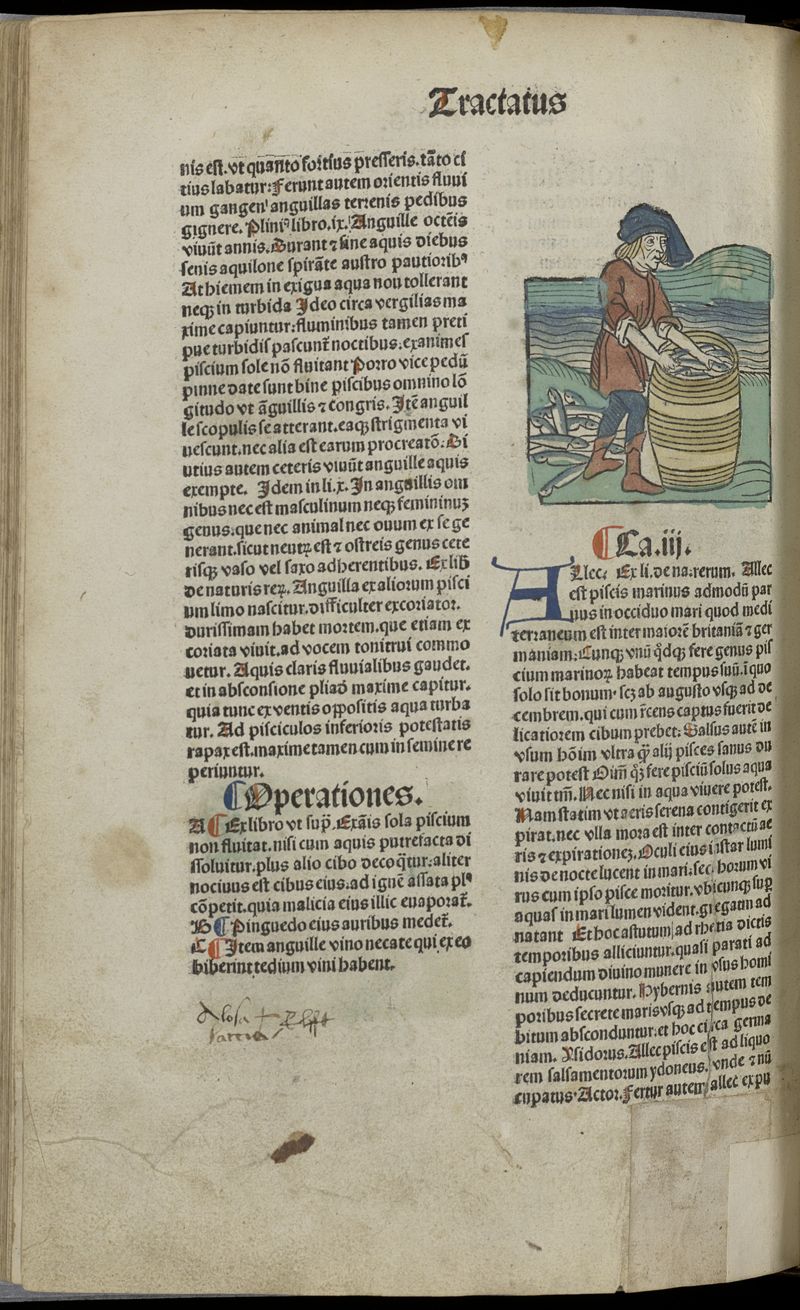 Tractatus
nis est. vt quanto fortius presseris. tāto ci
tius labatur: Ferunt autem orientis fluui
um gangen' anguillas terrenis pedibus
gignere. Pliniꝰ libro. ix. Anguille octēis
viuūt annis. Durant ⁊ sine aquis diebus
senis aquilone spirāte austro pautioribꝰ
At hiemem in exigua aqua non tollerant
neqꝫ in turbida Ideo circa vergilias ma
xime capiuntur: fluminibus tamen preci
pue turbidis pascunt᷑ noctibus: exanimes
piscium sole nō fluitant Porro vice pedū
pinne date sunt bine piscibus omnino lō
gitudo vt āguillis ⁊ congris. Itē anguil
le scopulis se atterant. eaqꝫ strigmenta vi
uescunt. nec alia est earum procreatō. Di
utius autem ceteris viuūt anguille aquis
exempte. Idem in li. x. In anguillis om
nibus nec est masculinum neqꝫ femininuꝫ
genus. que nec animal nec ouum ex se ge
nerant. sicut neutꝝ est ⁊ ostreis genus cete
risqꝫ vaso vel saxo adherentibus. Ex lib̄
de naturis reꝝ. Anguilla ex aliorum pisci
um limo nascitur. difficulter excoriator.
durissimam habet mortem. que etiam ex
coriata viuit. ad vocem tonitrui commo
uetur. Aquis claris fluuialibus gaudet.
et in absconsione pliad̄ maxime capitur.
quia tunc ex ventis oppositis aqua turba
tur. Ad pisciculos inferioris potestatis
rapax est. maxime tamen cum in semine re
periuntur.
¶ Operationes.
A ¶ Ex libro vt sup̄. Exāis sola piscium
non fluitat. nisi cum aquis putrefacta di
ssoluitur. plus alio cibo decoq̄tur: aliter
nociuus est cibus eius: ad ignē assata plꝰ
cōpetit. quia malicia eius illic euaporat᷑.
B ¶ Pinguedo eius auribus medet᷑.
C ¶ Item anguille vino necate qui ex eo
biberint tedium vini habent.
Alosa
¶ Ca. iij.
ALlec. Ex li. de na. rerum. Allec
est piscis marinus admodū par
uus in occiduo mari quod medi
terraneum est inter maiorē britaniā ⁊ ger
maniam: Cunqꝫ vnū q̊dqꝫ fere genus pis
cium marinoꝝ habeat tempus suū. ī quo
solo sit bonum. scꝫ ab augusto vsqꝫ ad de
cembrem. qui cum r̄cens captus fuerit de
licatiorem cibum prebet: Salsus autē in
vsum hōim vltra q̄ alij pisces sanus du
rare potest Oīm q̊ꝫ fere pisciū solus aqua
viuit tm̄. Nec nisi in aqua viuere potest.
Nam statim vt aeris serena contigerit ex
pirat. nec vlla mora est inter contactū ae
ris ⁊ expirationeꝫ. Oculi eius īstar lumi
nis de nocte lucent in mari: sec horum vi
rus cum ipso pisce moritur. vbicunqꝫ sup̄
aquas in mari lumen vident. gregatim ad
natant Et hoc astutum ad rhetia dictis
temporibus alliciuntur. quasi parati ad
capiendum diuino munere in vsus homi
num deducuntur. Hybernis autem tem
poribus secrete maris vsqꝫ ad tempus de
bitum absconduntur: et hoc circa germa
niam. Ysidorus. Allec piscis est ad liquo
rem salsamentorum ydoneus. vnde ⁊ nū
cupatus. Actor. Fertur autem allec expu